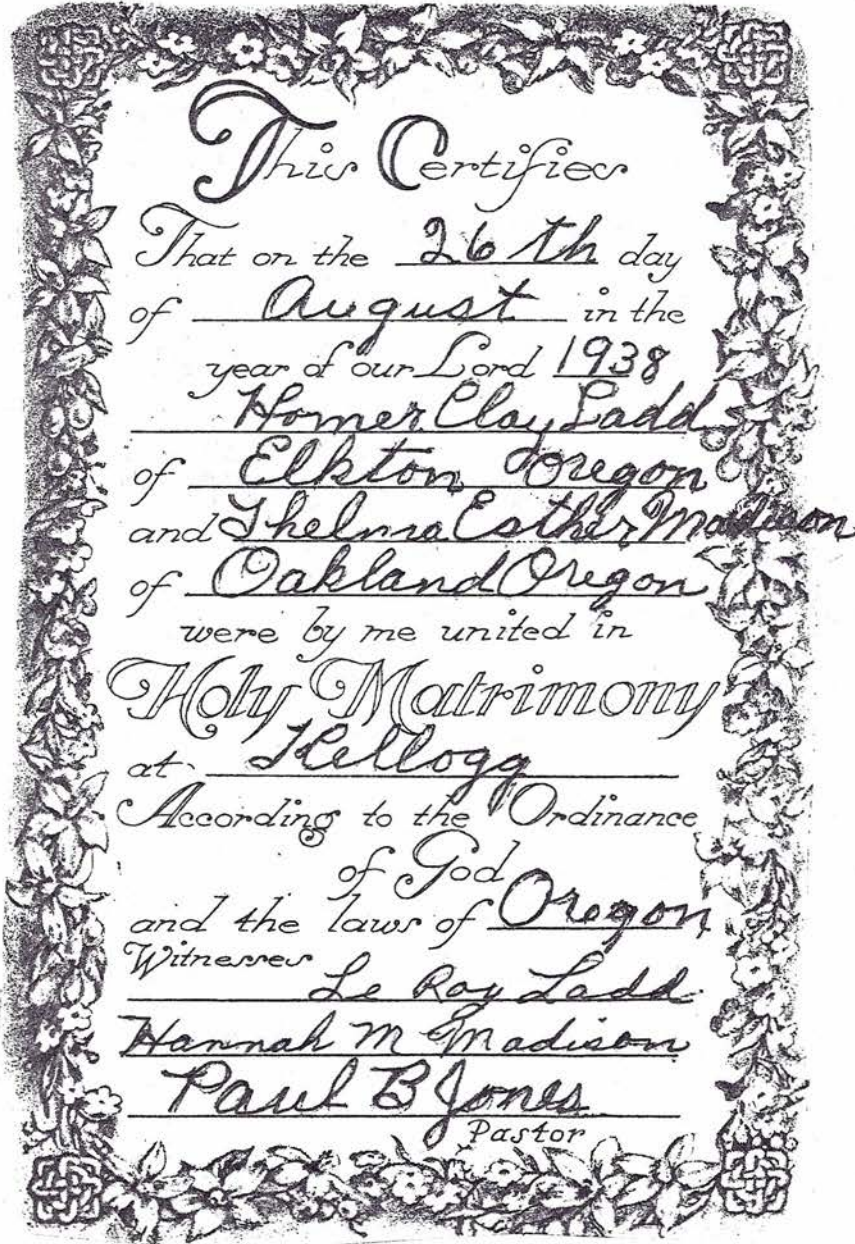 This Certifies
That on the 26th day
of August in the
year of our Lord 1938
Homer Clay Ladd
of Elkton Oregon
and Thelma Esther Madison
of Oakland Oregon
were by me united in
Holy Matrimony
at Kellogg
According to the Ordinance
of God
and the laws of Oregon
Witnesses
Le Roy Ladd
Hannah M Madison
Paul B Jones
Pastor